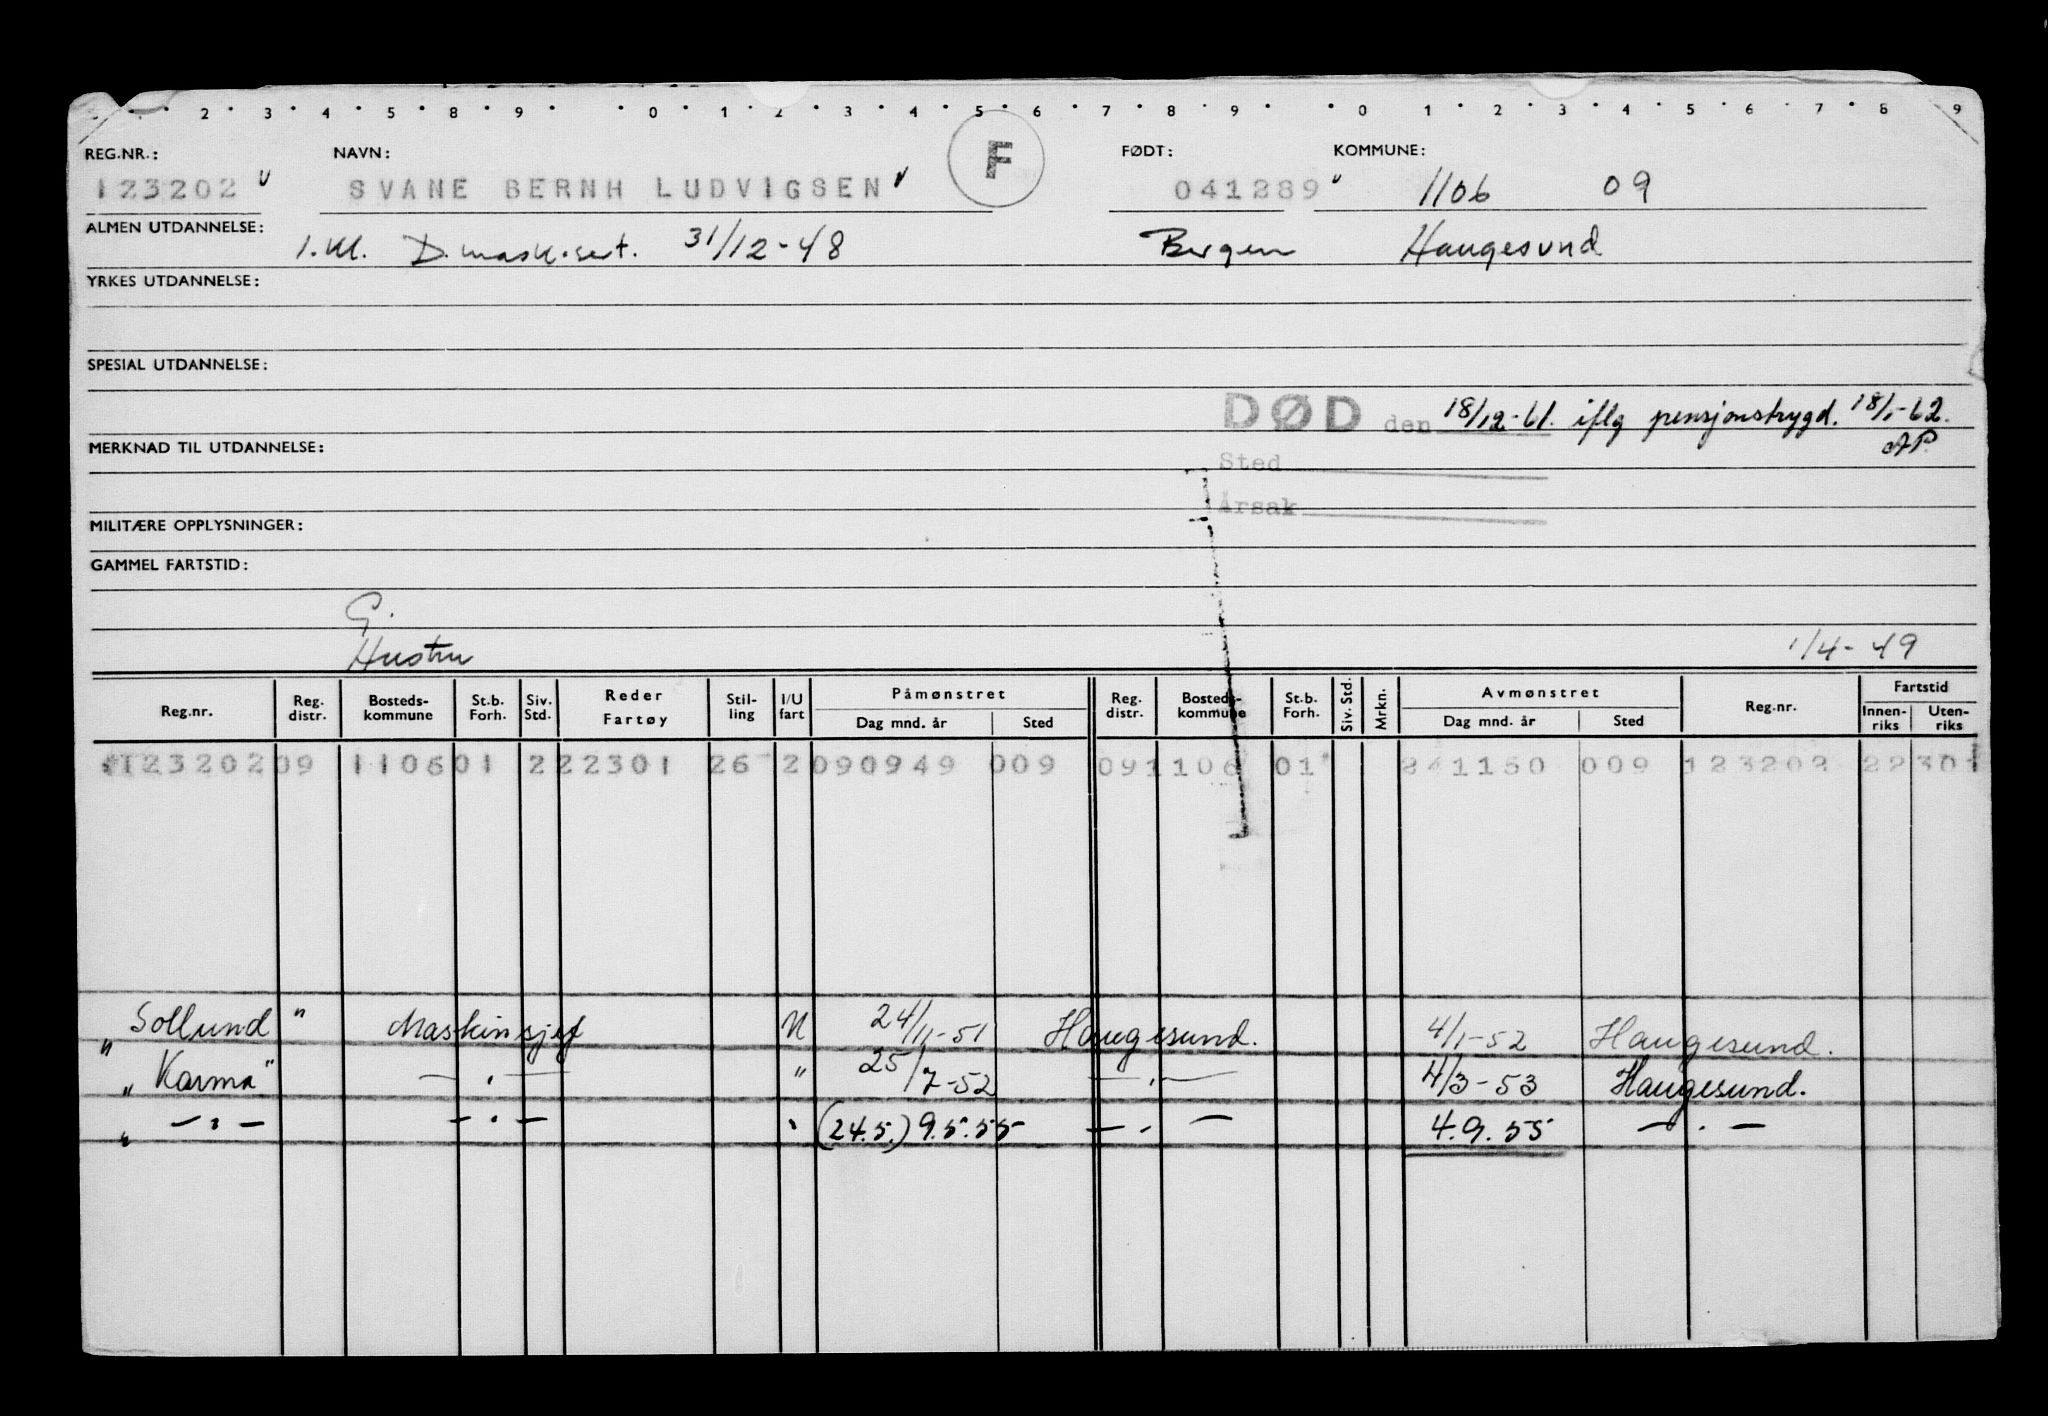 2 · 3 · 4 · 5 · 8 · 9 · · 0 · 1 · 2 · 3 · 4 · 5 · 6 · 7 · 8 · 9 · · 0 · 1 · 2 · 3 · 4 · 5 · 6 · 7 · 8 · 9
REG.NR.: NAVN: F FØDT: KOMMUNE:
123202 SVANE BERNH LUDVIGSEN 041289 1106 09
ALMEN UTDANNELSE: 1. kl. D.mask.sert. 31/12-48 Bergen Haugesund
YRKES UTDANNELSE:
SPESIAL UTDANNELSE:
DØD den 18/12-61. iflg pensjonstrygd. 18/1-62.
AP.
MERKNAD TIL UTDANNELSE:
Sted
Årsak
MILITÆRE OPPLYSNINGER:
GAMMEL FARTSTID:
G.
Hustru 1/4-49
Reg.nr. Reg. distr. Bosteds-kommune St.b. Forh. Siv. Std. Reder Fartøy Stil-ling I/U fart Påmønstret Dag mnd. år Sted Reg. distr. Bosteds-kommune St.b. Forh. Siv. Std. Mrkn. Avmønstret Dag mnd. år Sted Reg.nr. Fartstid Innen-riks Uten-riks
123202 09 1106 01 2 22301 26 2 090949 009 09 1106 01 241150 009 123202 22301
"Sollund" Maskinsjef U 24/11-51 Haugesund. 4/1-52 Haugesund.
"Karma" — " — " 25/7-52 — " — 4/3-53 Haugesund.
" — " — — " — " (24.5.) 9.5.55 — " — 4.9.55 — " —